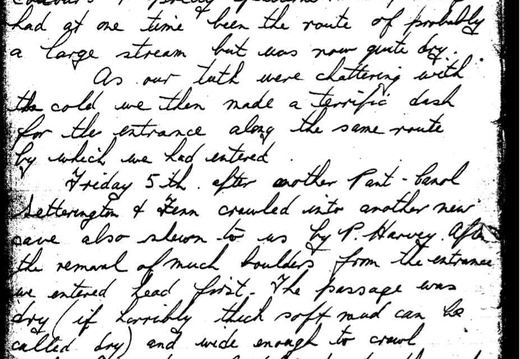 had at one time been the route of probably
a large stream but was now quite dry.
As our teeth were chattering with
the cold we then made a terrific dash
for the entrance along the same route
by which we had entered.
Friday 5th. after another Pant-
Setterington & Fenn crawled into another new
cave also shewn to us by P. Harvey. After
the removal of much boulders from the entrance
we entered head first. The passage was
dry (if horribly thick soft mud can be
called dry) and wide enough to crawl